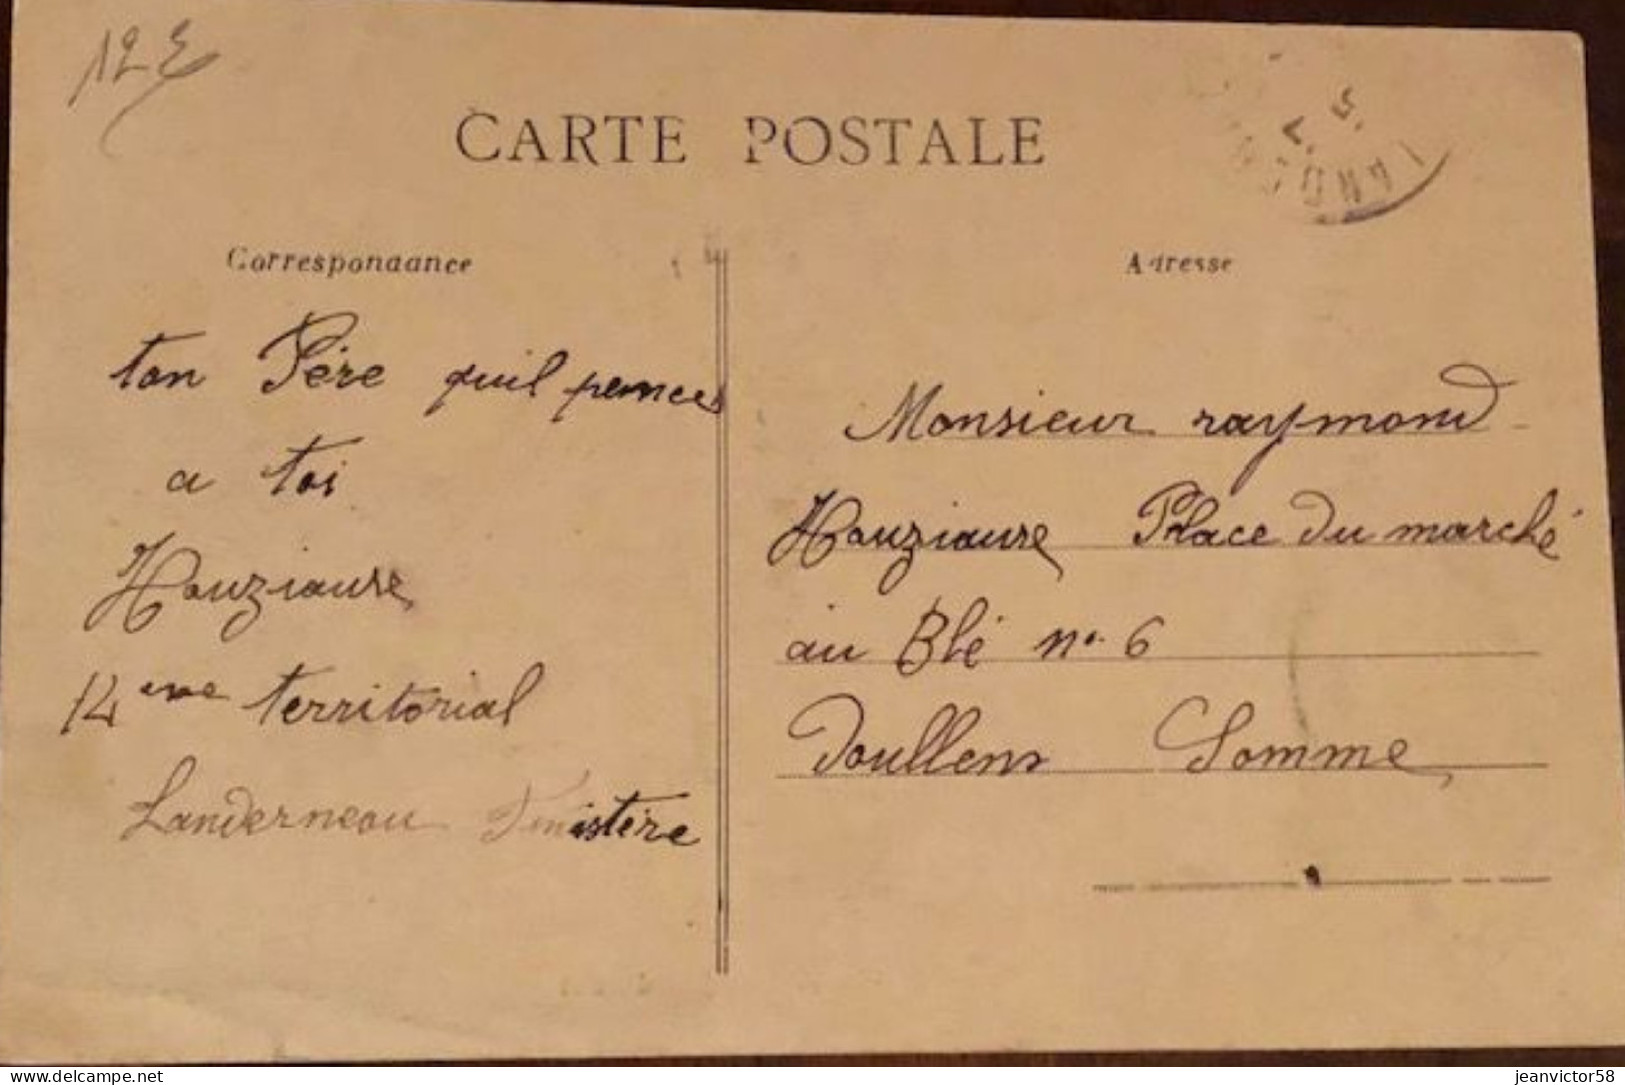 12 €
CARTE POSTALE
Correspondance
Adresse
ton Père quil pences
a toi
Houziause
12eme territorial
Landerneau Finistère
Monsieur raymond
Houziause Place du marché
au Blé no 6
Doullens Somme
delcampe.net
jeanvictor58